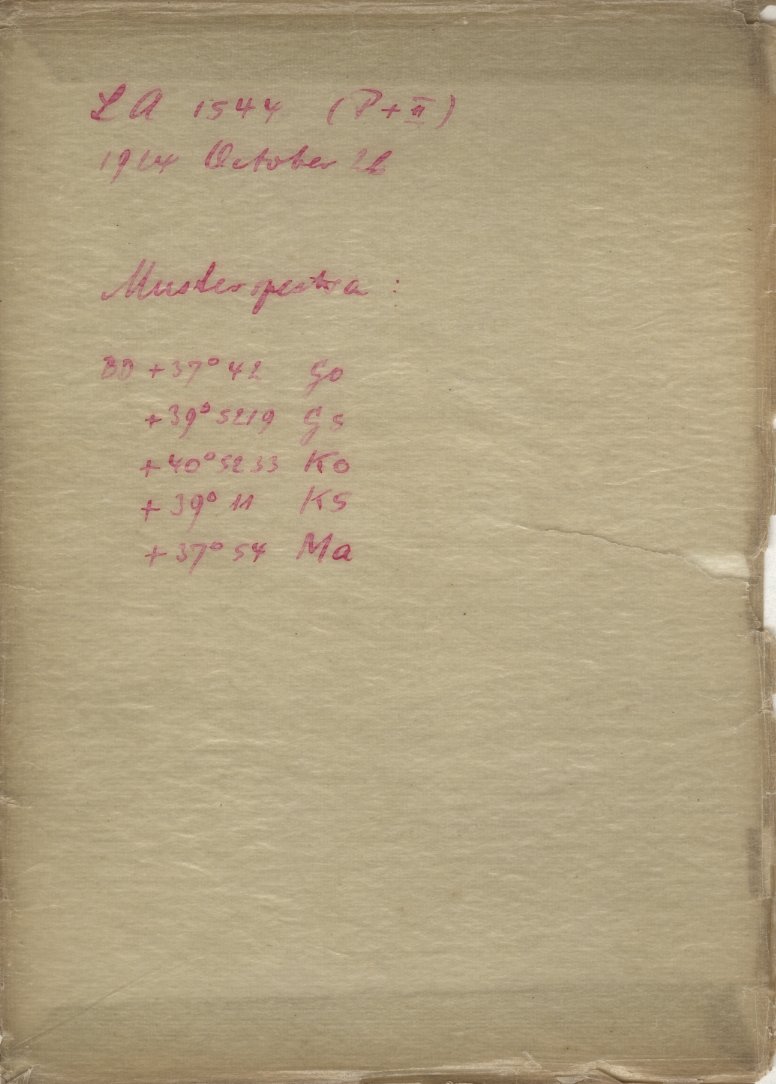 LA 1544 (P+II)
1914 October 26
Musterspectra :
BD +37° 42 G0
+39° 5219 G5
+40° 5233 K0
+39° 11 K5
+37° 54 Ma